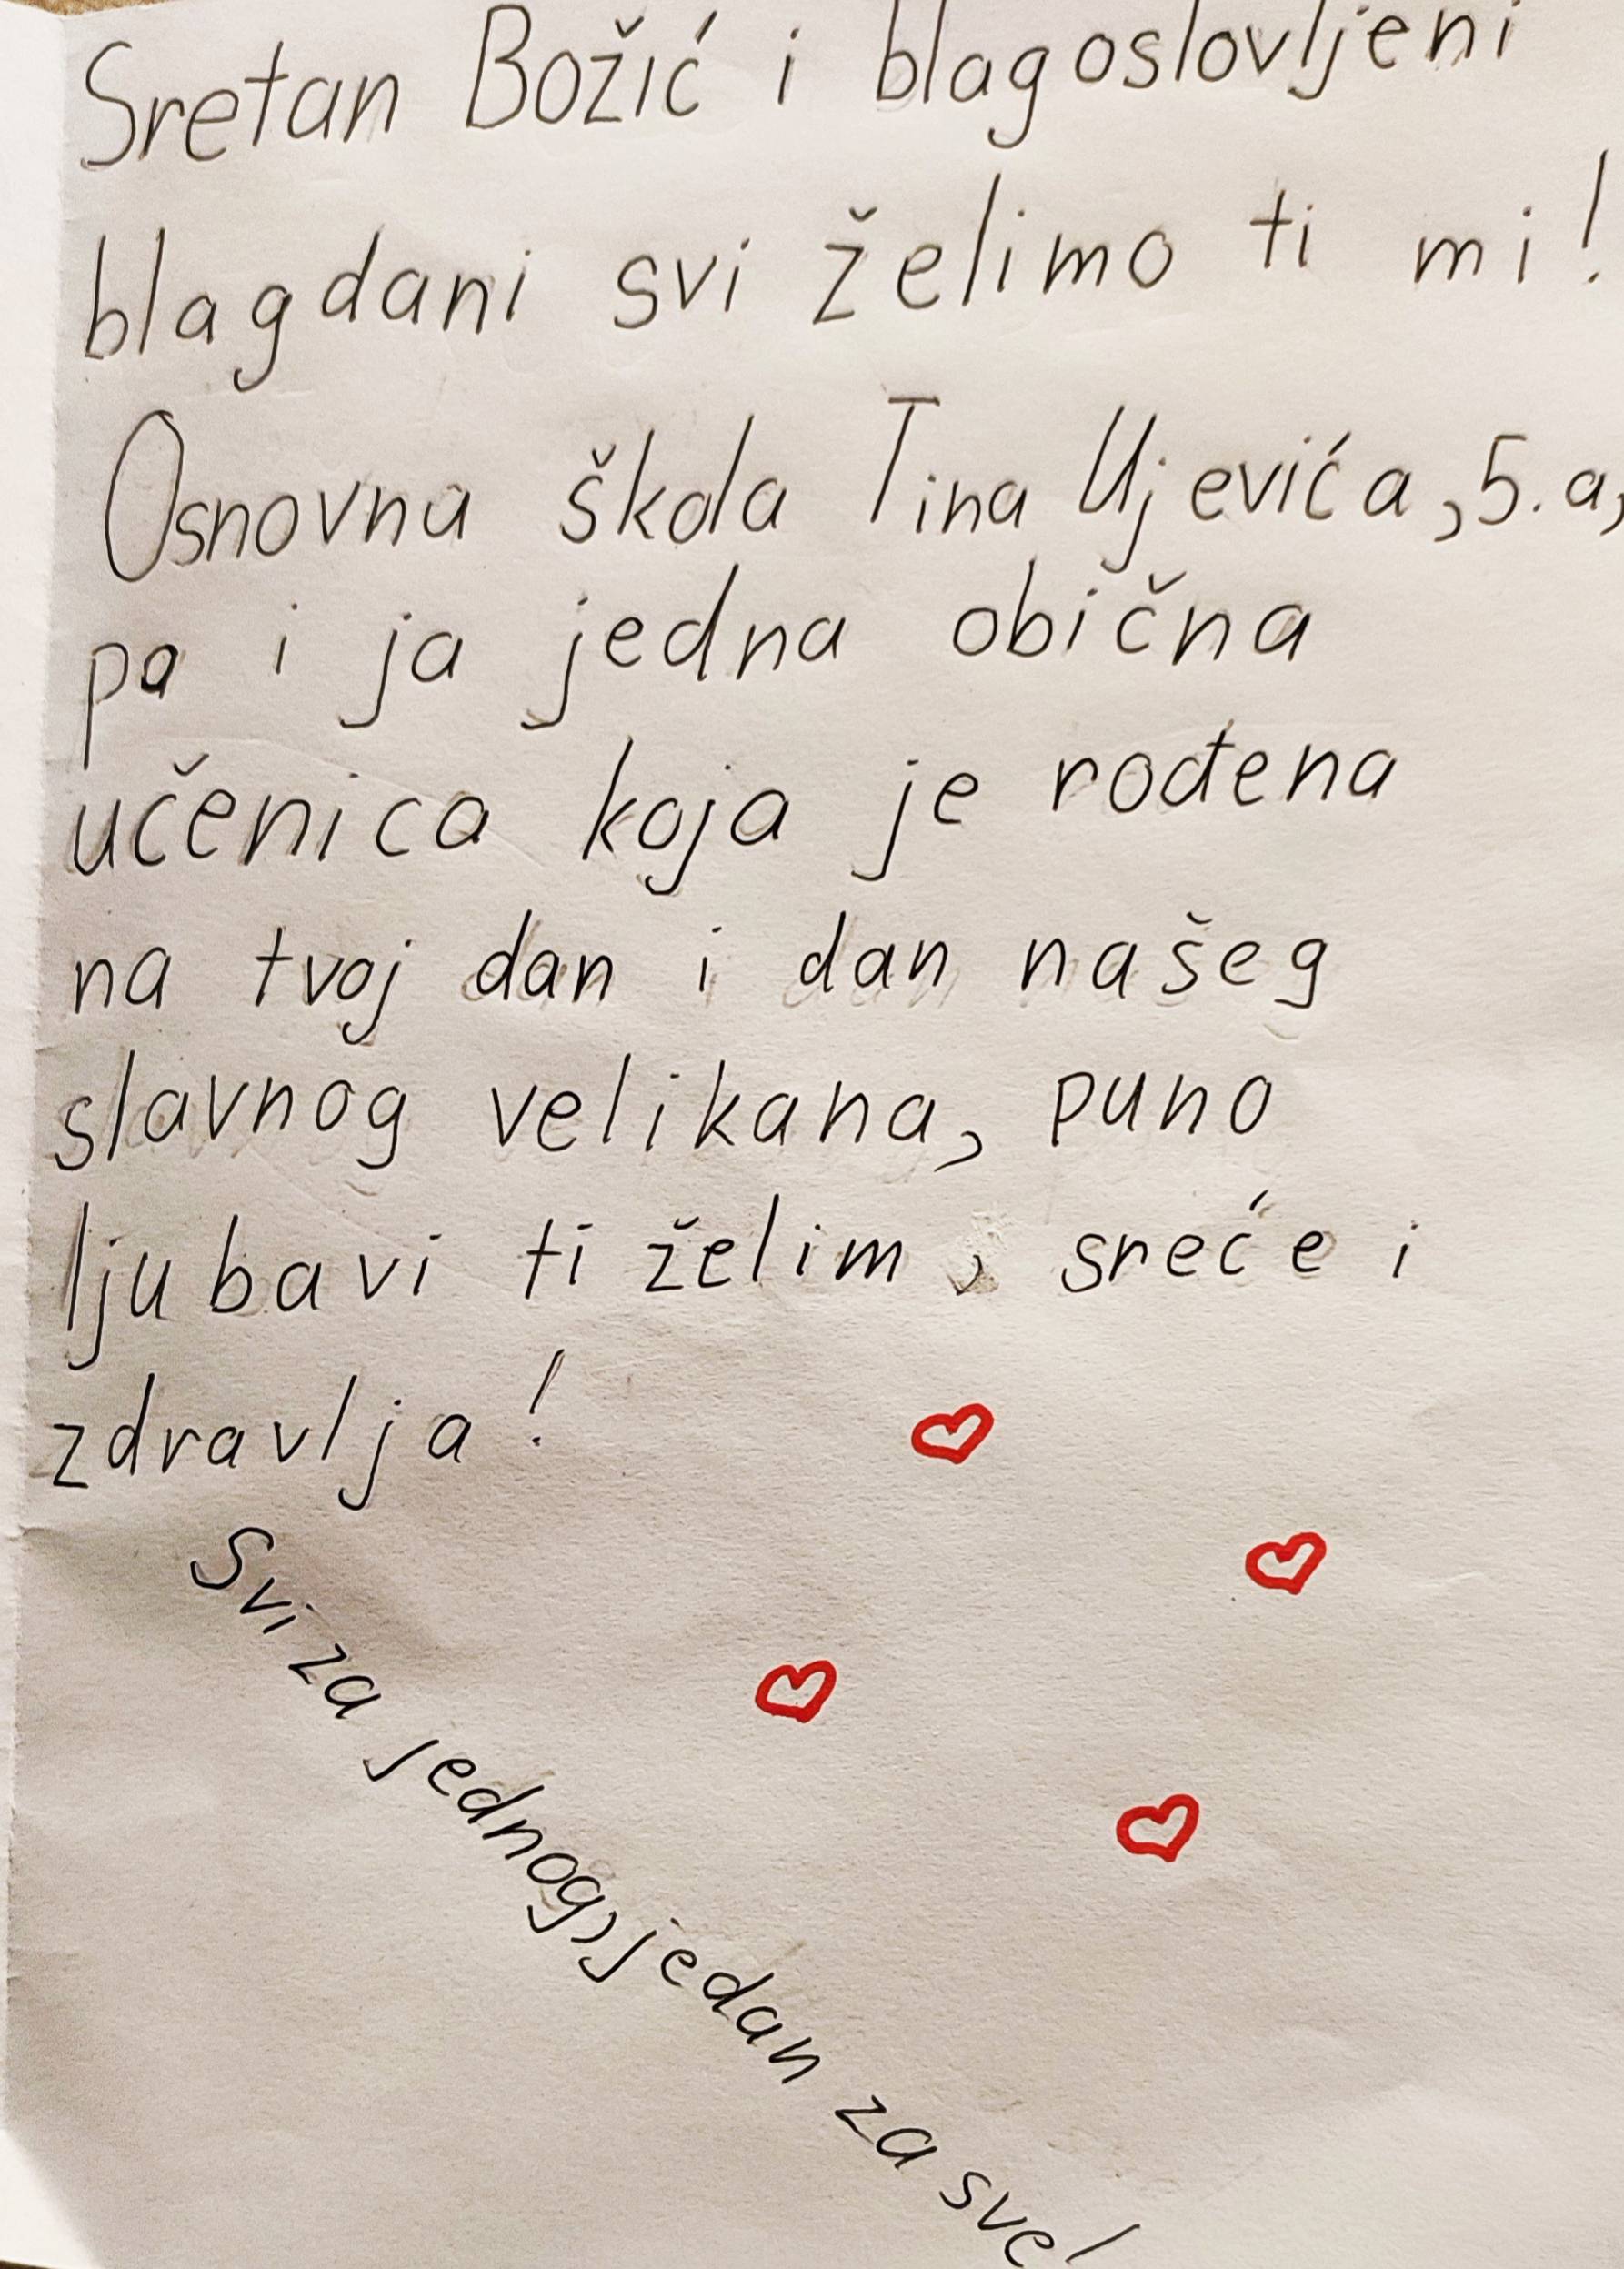 Sretan Božić i blagoslovljeni
blagdani svi želimo ti mi!
Osnovna škola Tina Ujevića, 5.a,
pa i ja jedna obična
učenica koja je rođena
na tvoj dan i dan našeg
slavnog velikana, puno
ljubavi ti želim, sreće i
zdravlja!
Svi za jednog, jedan za sve!